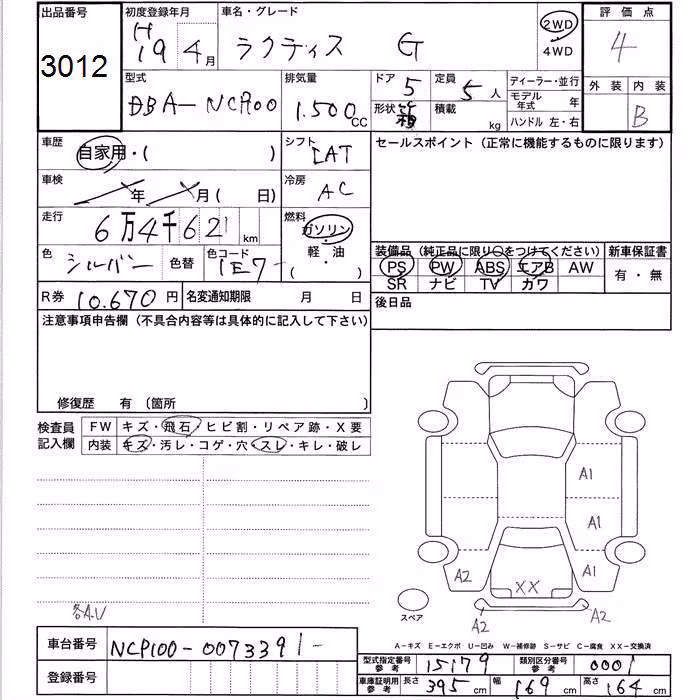 出品番号 初度登録年月 車名・グレード 評価点
3012 H19 4月 ラクティス G 2WD 4WD 4
型式 排気量 ドア 5 定員 5人 ディーラー・並行 外装 内装
DBA-NCP100 1.500CC 形状 箱 積載 kg モデル年式 年 B
ハンドル 左・右
車歴 自家用・( ) シフト IAT セールスポイント (正常に機能するものに限ります)
車検 年 月( 日) 冷房 AC
走行 6万4千621km 燃料 ガソリン・軽・油・( )
色 シルバー 色替 色コード 1E7- 装備品 (純正品に限り○をつけてください) 新車保証書
PS PW ABS エアB AW 有・無
SR ナビ TV カワ
R券 10.670円 名変通知期限 月 日 後日品
注意事項申告欄 (不具合内容等は具体的に記入して下さい)
修復歴 有 (箇所 )
検査員 FW キズ・飛石・ヒビ割・リペア跡・X要
記入欄 内装 キズ・汚レ・コゲ・穴・スレ・キレ・破レ
A1
A1
A2 XX A1
A2 A2
スペア
各A.U
A-キズ E-エクボ U-凹み W-補修跡 S-サビ C-腐食 XX-交換済
車台番号 NCP100-0073391-
型式指定番号 参考 15179 類別区分番号 参考 0001
登録番号
車庫証明用 参考 長さ 395cm 幅 169cm 高さ 164cm